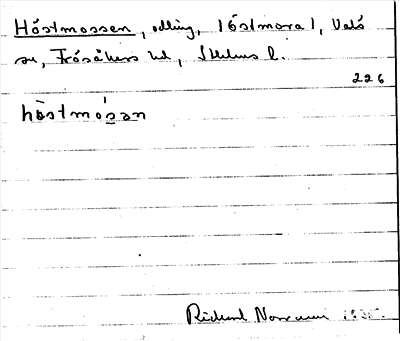 Höstmossen, odling, 1 östmora 1, Valö
sn, Frösåkers hd, Sthlms l.
226
hö̀stmósan
Rickard Norrman 1935.